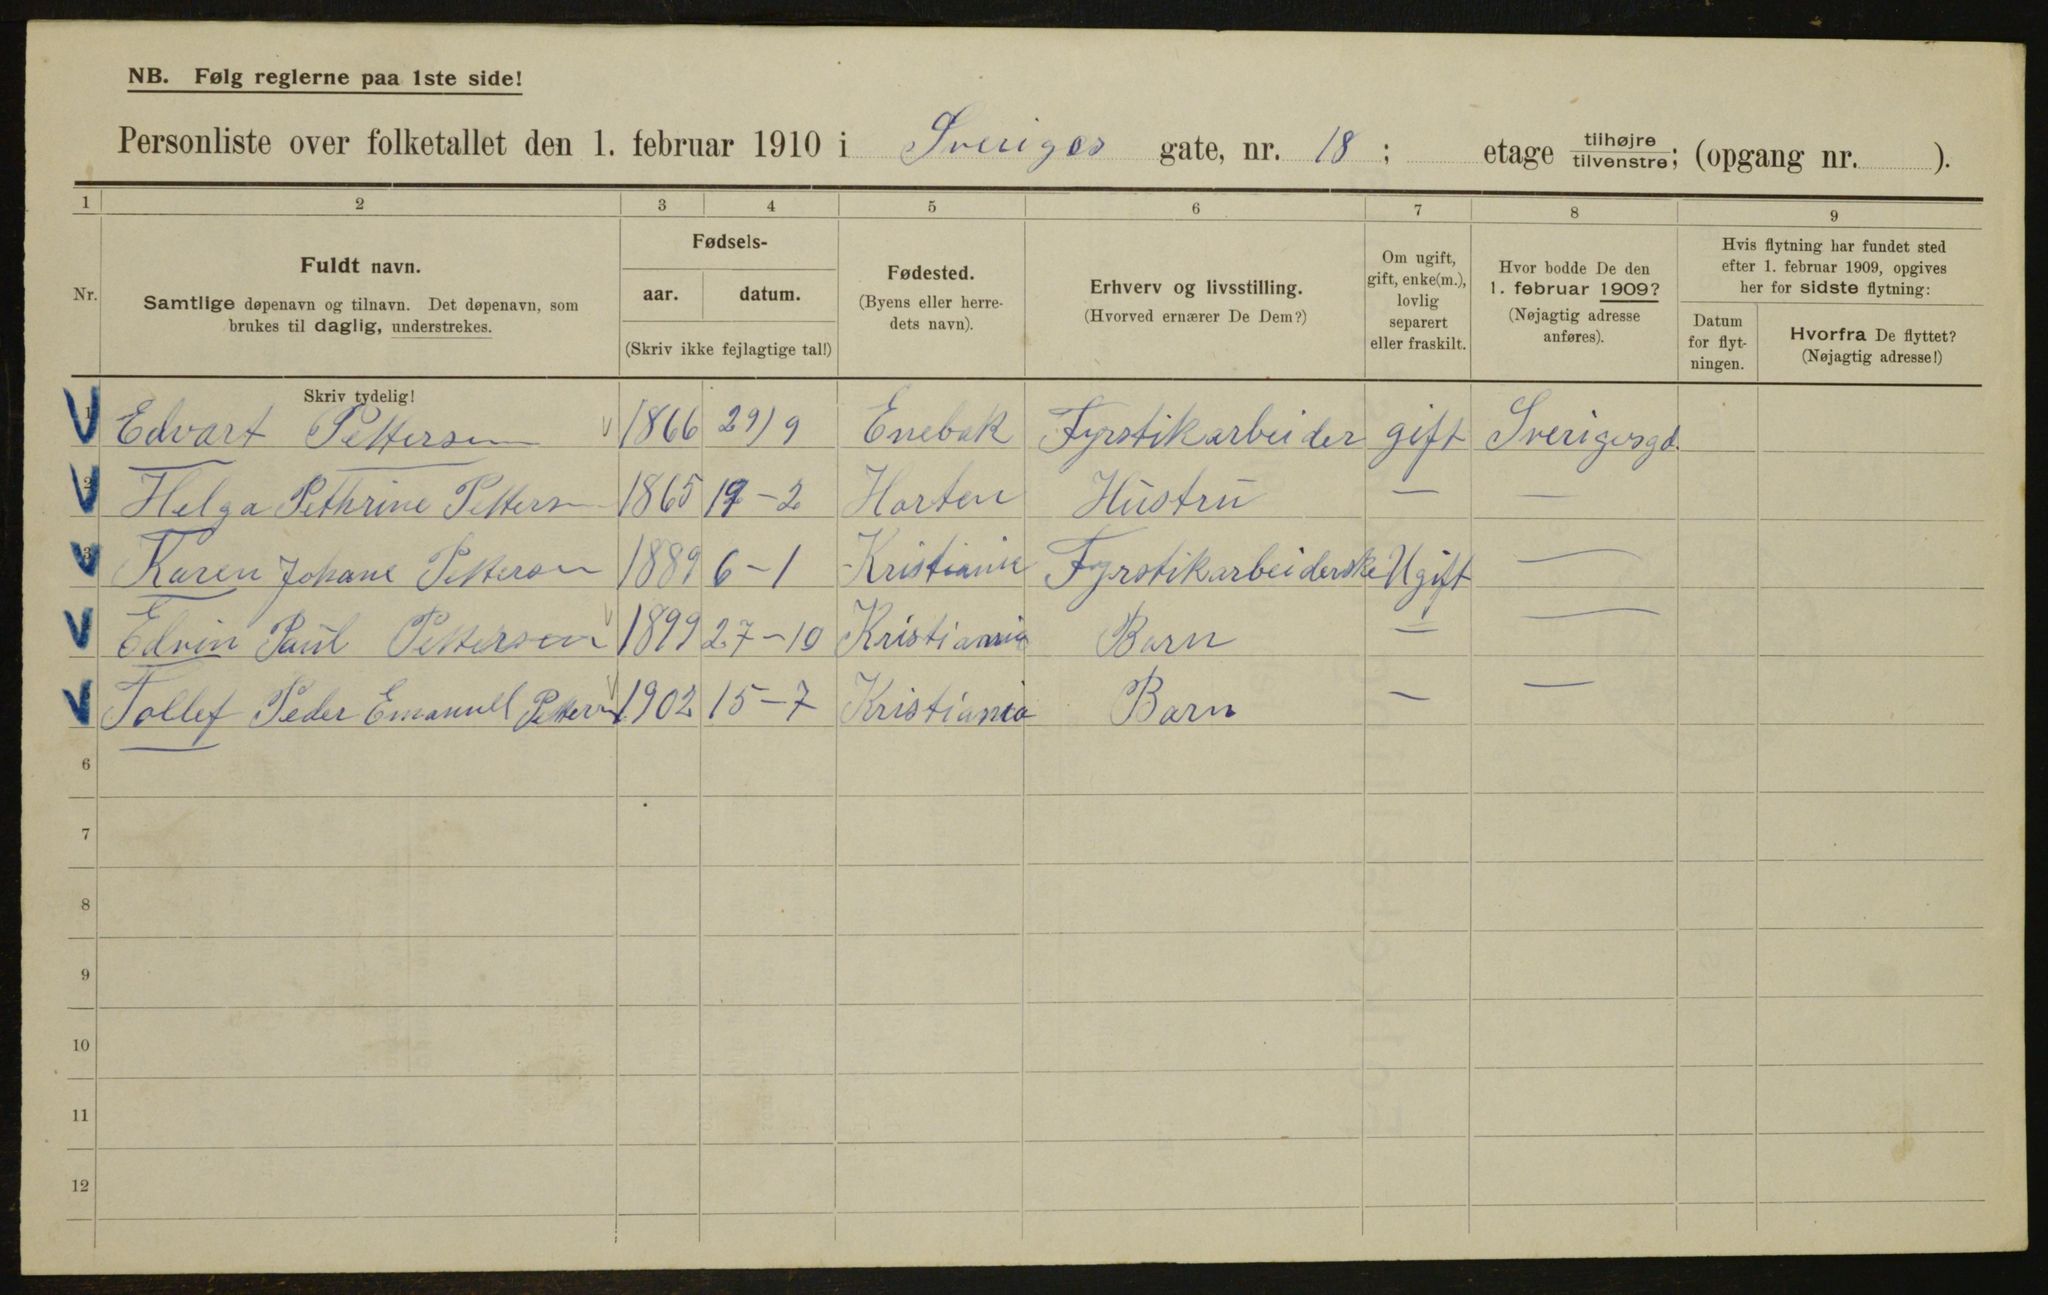 NB. Følg reglerne paa 1ste side!
Personliste over folketallet den 1. februar 1910 i Sveriges gate, nr. 18 ; etage tilhøjre tilvenstre; (opgang nr. ).
1 2 3 4 5 6 7 8 9
Nr.
Fuldt navn.
Samtlige døpenavn og tilnavn. Det døpenavn, som
brukes til daglig, understrekes.
Fødsels-
aar. datum.
(Skriv ikke fejlagtige tal!)
Fødested.
(Byens eller herre-
dets navn).
Erhverv og livsstilling.
(Hvorved ernærer De Dem?)
Om ugift,
gift, enke(m.),
lovlig
separert
eller fraskilt.
Hvor bodde De den
1. februar 1909?
(Nøjagtig adresse
anføres).
Hvis flytning har fundet sted
efter 1. februar 1909, opgives
her for sidste flytning:
Datum
for flyt-
ningen.
Hvorfra De flyttet?
(Nøjagtig adresse!)
Skriv tydelig!
1 Edvart Pettersen 1866 29/9 Enebak Fyrstikarbeider gift Sverigesgd.
2 Helga Pethrine Pettersn 1865 19-2 Horten Hustru — —
3 Karen Johane Petterson 1889 6-1 Kristiania Fyrstikarbeiderske Ugift —
Edvin Paul Pettersen 1899 27-10 Kristiania Barn — —
Tollef Peder Emanuel Pettersn 1902 15-7 Kristiania Barn — —
6
7
8
9
10
11
12